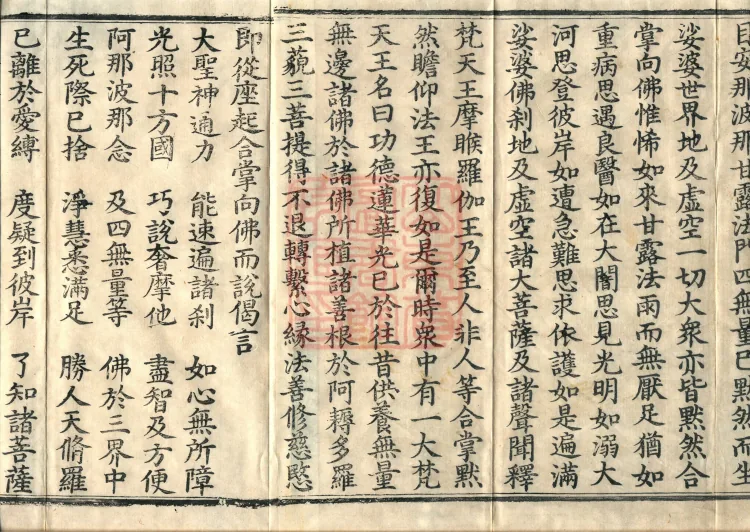 目安那波那甘露法門四無量已默然而坐
娑婆世界地及虛空一切大衆亦皆默然合
掌向佛惟悕如來甘露法雨而無厭足猶如
重病思遇良醫如在大闇思見光明如溺大
河思登彼岸如遭急難思求依護如是遍滿
娑婆佛刹地及虛空諸大菩薩及諸聲聞釋
梵天王摩睺羅伽王乃至人非人等合掌默
然瞻仰法王亦復如是爾時衆中有一大梵
天王名曰功德蓮華光已於往昔供養無量
無邊諸佛於諸佛所植諸善根於阿耨多羅
三藐三菩提得不退轉繫心緣法善修慈愍
即從座起合掌向佛而說偈言
大聖神通力 能速遍諸刹 如心無所障
光照十方國 巧說奢摩他 盡智及方便
阿那波那念 及四無量等 佛於三界中
生死際已捨 淨慧悉滿足 勝人天脩羅
已離於愛縛 度疑到彼岸 了知諸菩薩